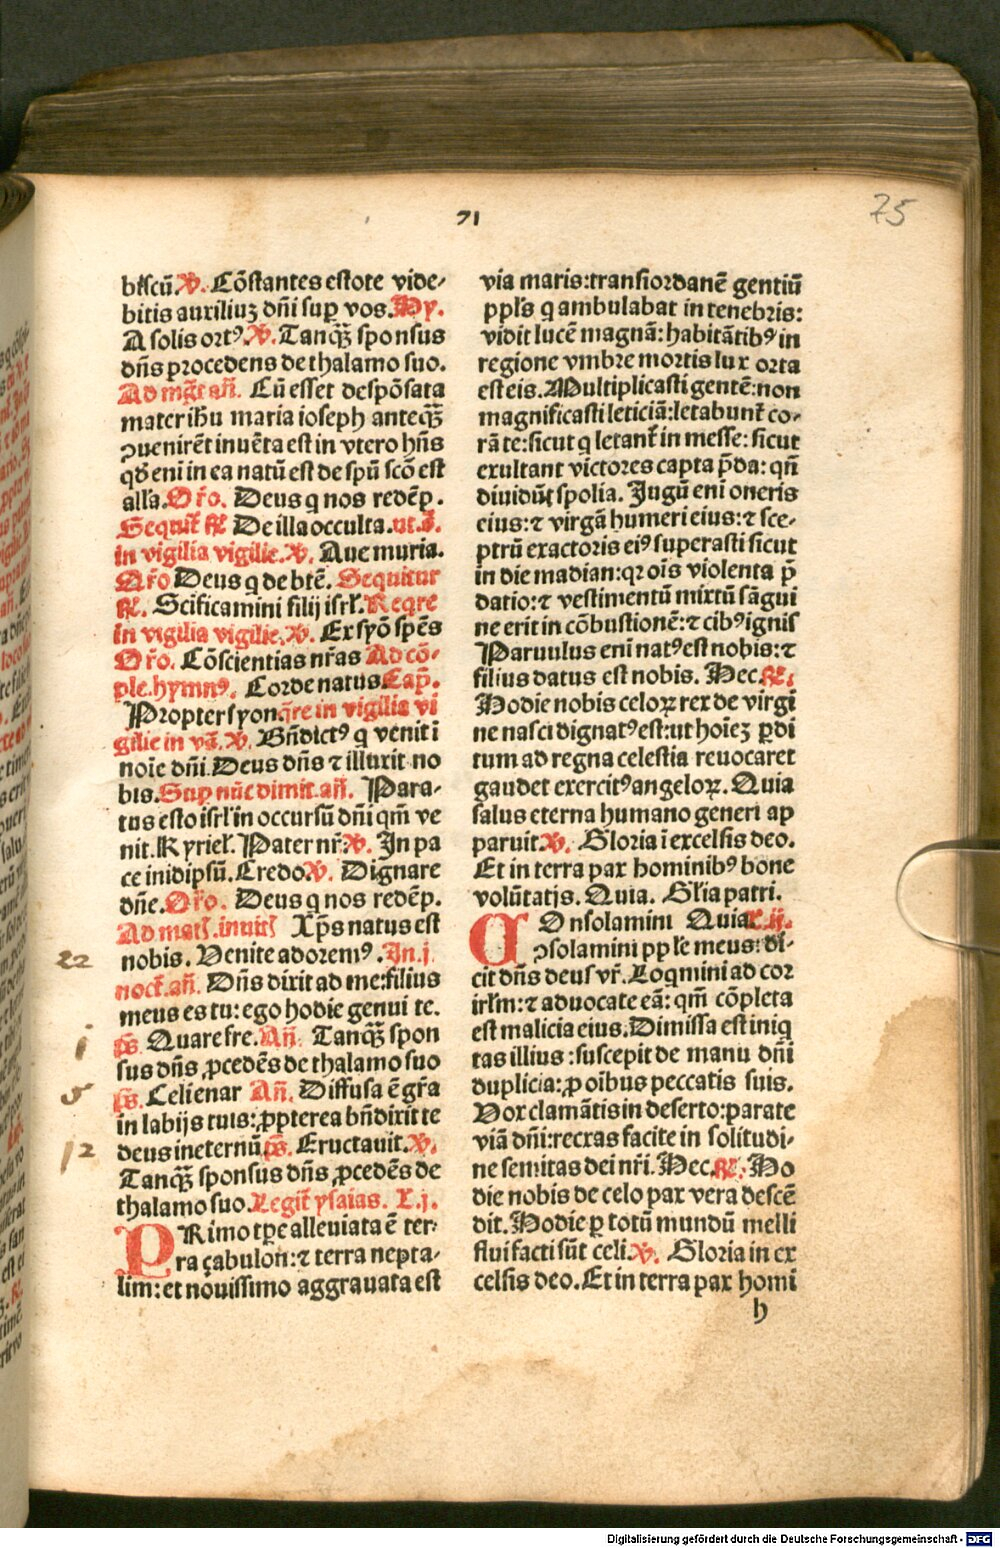 71
75
biscū. V. Cōstantes estote vide-
bitis auxiliuȝ dn̄i suꝑ vos. Hy.
A solis ortꝰ. V. Tanqȝ̄ sponsus
dn̄s procedens de thalamo suo.
Ad mḡt an̄. Cū esset despōsata
mater ih̄u maria ioseph anteqȝ̄
ꝯuenirēt inuēta est in vtero hn̄s
qd̄ eni in ea natū est de spū scō est
alľa. Or̄o. Deus q nos redēp.
Sequit̄ ℟. De illa occulta. ut s.
in vigilia vigilie. V. Aue muria.
Or̄o Deus q de btē. Sequitur
℟. Scificamini filij isrl̄. Reqre
in vigilia vigilie. V. Ex syō spēs
Or̄o. Cōscientias nr̄as Ad cō-
ple. hymnꝰ. Corde natus Cap̄.
Propter syon. qr̄e in vigilia vi
gilie in va. V. Bn̄dictꝰ q venit i
noīe dn̄i. Deus dn̄s ⁊ illuxit no
bis. Suꝑ nūc dimit. an̄. Para-
tus esto isrl̄ in occursū dn̄i qm̄ ve
nit. Kyriel̄. Pater nr̄. V. In pa
ce in idipsū. Credo. V. Dignare
dn̄e. Or̄o. Deus q nos redēp.
Ad mat͛. inuit͛ Xp̄s natus est
nobis. Venite adoremꝰ. In. j.
noct̄. an̄. Dn̄s dixit ad me: filius
meus es tu: ego hodie genui te.
ps̄. Quare fre. An̄. Tanqȝ̄ spon
sus dn̄s ꝓcedēs de thalamo suo
ps̄. Celi enar An̄. Diffusa ē gr̄a
in labijs tuis: ꝓpterea bn̄dixit te
deus in eternū. ps̄. Eructauit. V.
Tanqȝ̄ sponsus dn̄s ꝓcedēs de
thalamo suo. Legit̄ ysaias. L. j.
PRimo tꝑe alleuiata ē ter-
ra çabulon: ⁊ terra nepta-
lim: et nouissimo aggrauata est
22
i
5
12
via maris: transiordanē gentiū
ppl̄s q ambulabat in tenebris:
vidit lucē magnā: habitātibꝰ in
regione vmbre mortis lux orta
est eis. Multiplicasti gentē: non
magnificasti leticiā: letabunt̄ co-
rā te: sicut q letant̄ in messe: sicut
exultant victores capta p̄da: qn̄
diuidūt spolia. Jugū eni oneris
eius: ⁊ virgā humeri eius: ⁊ sce-
ptrū exactoris eiꝰ superasti sicut
in die madian: qꝛ oīs violenta p̄
datio: ⁊ vestimentū mixtū sāgui
ne erit in cōbustionē: ⁊ cibꝰ ignis
Paruulus eni natꝰ est nobis: ⁊
filius datus est nobis. Hec. ℟.
Hodie nobis celoꝝ rex de virgi
ne nasci dignatꝰ est: ut hoīeȝ ꝑdi
tum ad regna celestia reuocaret
gaudet exercitꝰ angeloꝝ. Quia
salus eterna humano generi ap
paruit. V. Gloria ī excelsis deo.
Et in terra pax hominibꝰ bone
volūtatis. Quia. Gl̄ia patri.
COnsolamini Quia L. ij.
ꝯsolamini pple meus: di-
cit dn̄s deus vr̄. Loqmini ad cor
irl̄m: ⁊ aduocate eā: qm̄ cōpleta
est malicia eius. Dimissa est iniq
tas illius: suscepit de manu dn̄i
duplicia: ꝓ oibus peccatis suis.
Vox clamātis in deserto: parate
viā dn̄i: rectas facite in solitudi-
ne semitas dei nr̄i. Hec. ℟. Ho
die nobis de celo pax vera descē
dit. Hodie ꝑ totū mundū melli
flui facti sūt celi. V. Gloria in ex
celsis deo. Et in terra pax homi
h
Digitalisierung gefördert durch die Deutsche Forschungsgemeinschaft - DFG